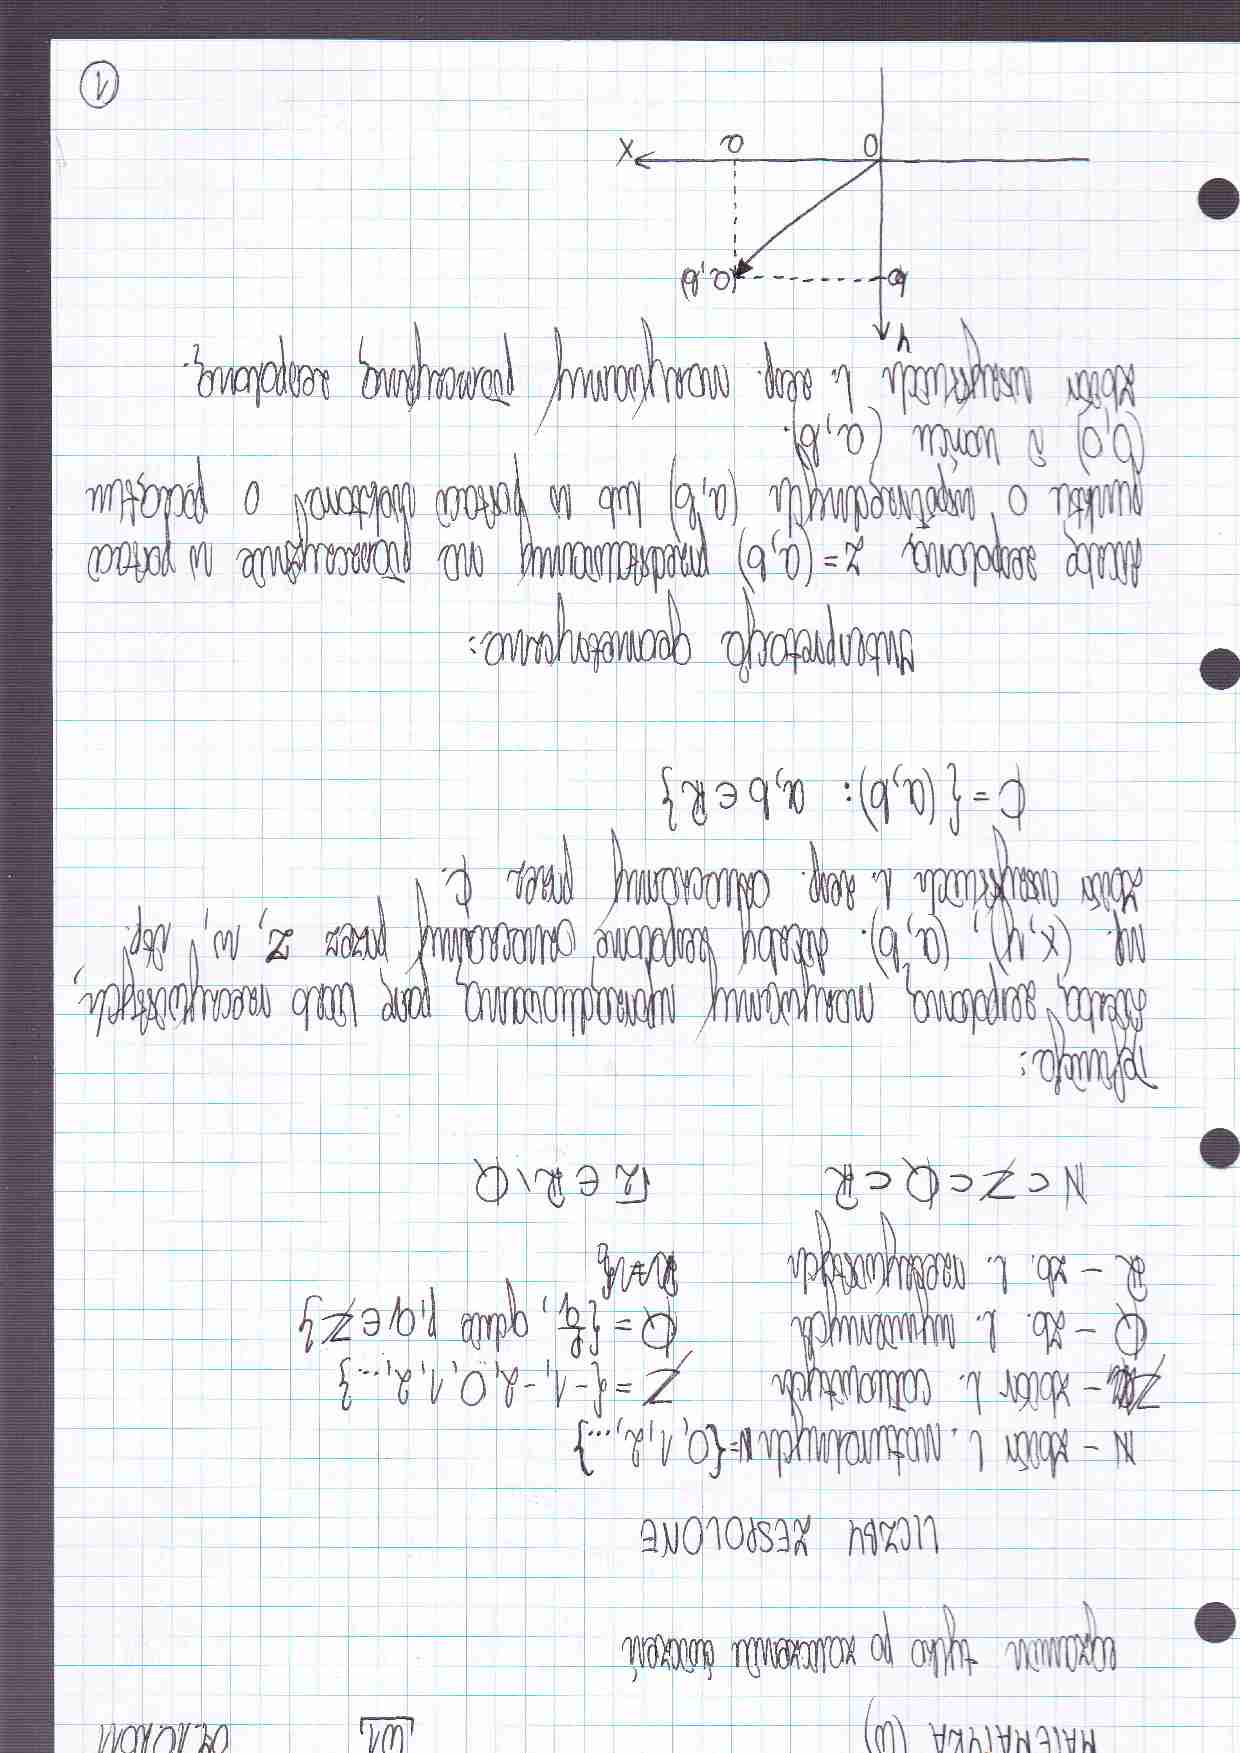 MATEMATYKA (W) W1 04.10.2011
egzamin tylko po zaliczeniu ćwiczeń
LICZBY ZESPOLONE
N - zbiór l. naturalnych N={0,1,2,...}
Z - zbiór l. całkowitych Z={-1,-2,0,1,2,...}
Q - zb. l. wymiernych Q={p/q, gdzie p,q∈Z}
R - zb. l. rzeczywistych
N⊂Z⊂Q⊂R √2∈R\Q
Definicja:
Liczbą zespoloną nazywamy uporządkowaną parę liczb rzeczywistych,
np. (x,y), (a,b). Liczby zespolone oznaczamy przez z, w, itp.
Zbiór wszystkich l. zesp. oznaczamy przez C.
C={(a,b): a,b∈R}
Interpretacja geometryczna:
Liczbę zespoloną z=(a,b) przedstawiamy na płaszczyźnie w postaci
punktu o współrzędnych (a,b) lub w postaci wektora, o początku
(0,0) i końcu (a,b).
Zbiór wszystkich l. zesp. nazywamy płaszczyzną zespoloną.
y
b (a,b)
0 a x
1